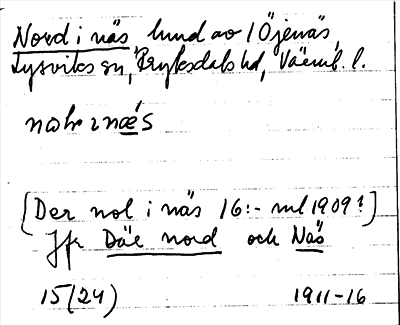 Nord i näs hund av 1 Öjenäs,
Lysviks sn, Fryksdals hd, Värml. l.
[Der nol i näs 16:- ml 1909?]
Jfr Där nord och Näs
15 (24) 1911-16